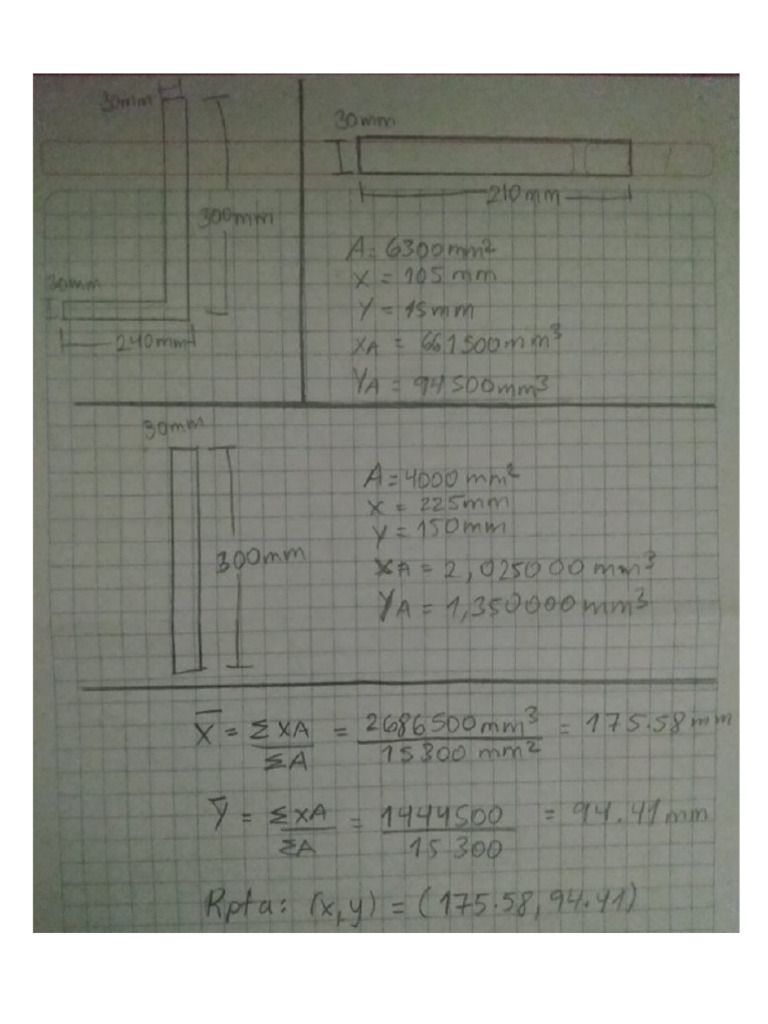 30mm
300mm
30mm
240mm
30mm
210mm
A = 6300mm²
X = 105 mm
Y = 15mm
XA = 661500mm³
YA = 94500mm³
30mm
300mm
A = 4000 mm²
X = 225mm
Y = 150mm
XA = 2,025000 mm³
YA = 1,350000mm³
X̅ = ΣXA/ΣA = 2686500mm³/15300 mm² = 175.58mm
Y̅ = ΣXA/ΣA = 1444500/15300 = 94.41mm
Rpta: (x,y) = (175.58, 94.41)